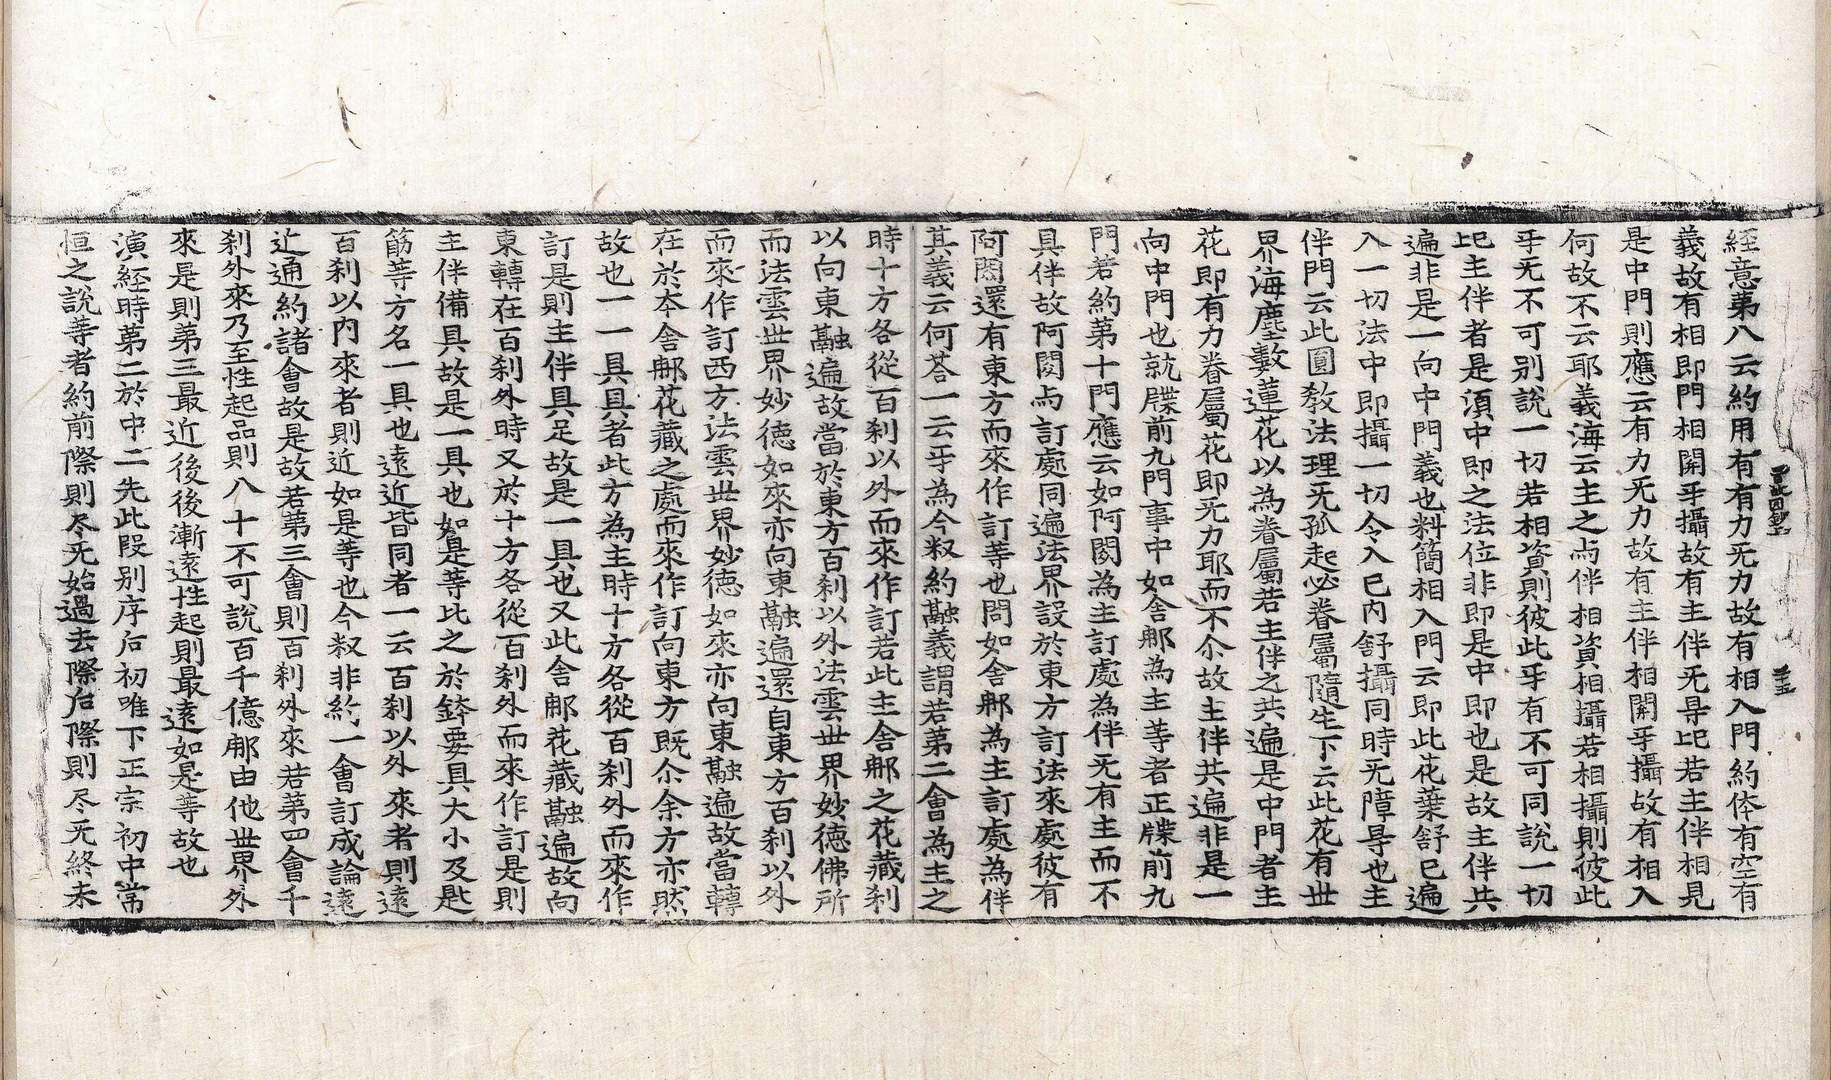 經意第八云約用有有力无力故有相入門約体有空有
義故有相即門相開乎攝故有主伴无㝵此若主伴相見
是中門則應云有力无力故有主伴相開乎攝故有相入
何故不云耶義海云主之与伴相資相攝若相攝則彼此
乎无不可别說一切若相資則彼此乎有不可同說一切
此主伴者是湏中即之法位非即是中即也是故主伴共
遍非是一向中門義也料簡相入門云即此花葉舒已遍
入一切法中即攝一切令入已內舒攝同時无障㝵也主
伴門云此圓敎法理无孤起必眷屬隨生下云此花有世
界海塵數蓮花以為眷屬若主伴之共遍是中門者主
花即有力眷屬花即无力耶而不尒故主伴共遍非是一
向中門也就牒前九門事中如舍那為主等者正牒前九
門若約第十門應云如阿閦為主訂處為伴无有主而不
具伴故阿閦与訂處同遍法界設於東方訂法來處彼有
阿閦還有東方而來作訂等也問如舍那為主訂處為伴
其義云何荅一云乎為今釈約融義謂若第二會為主之
時十方各從百刹以外而來作訂若此主舍那之花藏刹
以向東融遍故當於東方百刹以外法雲世界妙德佛所
而法雲世界妙德如來亦向東融遍還自東方百刹以外
而來作訂西方法雲世界妙德如來亦向東融遍故當轉
在於本舍那花藏之處而來作訂向東方既尒余方亦然
故也一一具具者此方為主時十方各從百刹外而來作
訂是則主伴具足故是一具也又此舍那花藏融遍故向
東轉在百刹外時又於十方各從百刹外而來作訂是則
主伴備具故是一具也如是等比之於鉢要具大小及匙
筯等方名一具也遠近皆同者一云百刹以外來者則遠
百刹以內來者則近如是等也今釈非約一會訂成論遠
近通約諸會故是故若第三會則百刹外來若第四會千
刹外來乃至性起品則八十不可說百千億那由他世界外
來是則第三最近後後漸遠性起則最遠如是等故也
演經時第二於中二先此段别序后初唯下正宗初中常
恒之說等者約前際則尽无始過去際后際則尽无終未